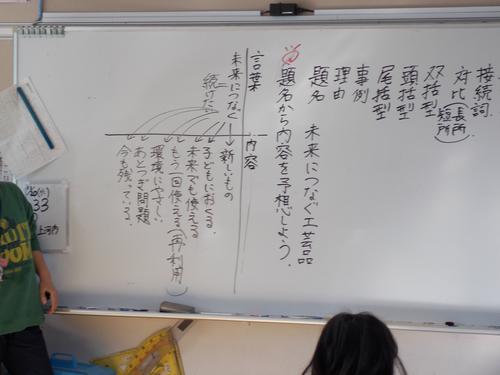 接続詞
対比(長所
短所)
双括型
頭括型
尾括型
事例
理由
題名 未来につなぐ工芸品
め 題名から内容を予想しよう。
言葉 内容
未来につなぐ → 新しいもの
続けた
子どもにおくる。
未来でも使える
もう一回使える(再利用)
環境にやさしい
あとつぎ問題
今も残っている。
33